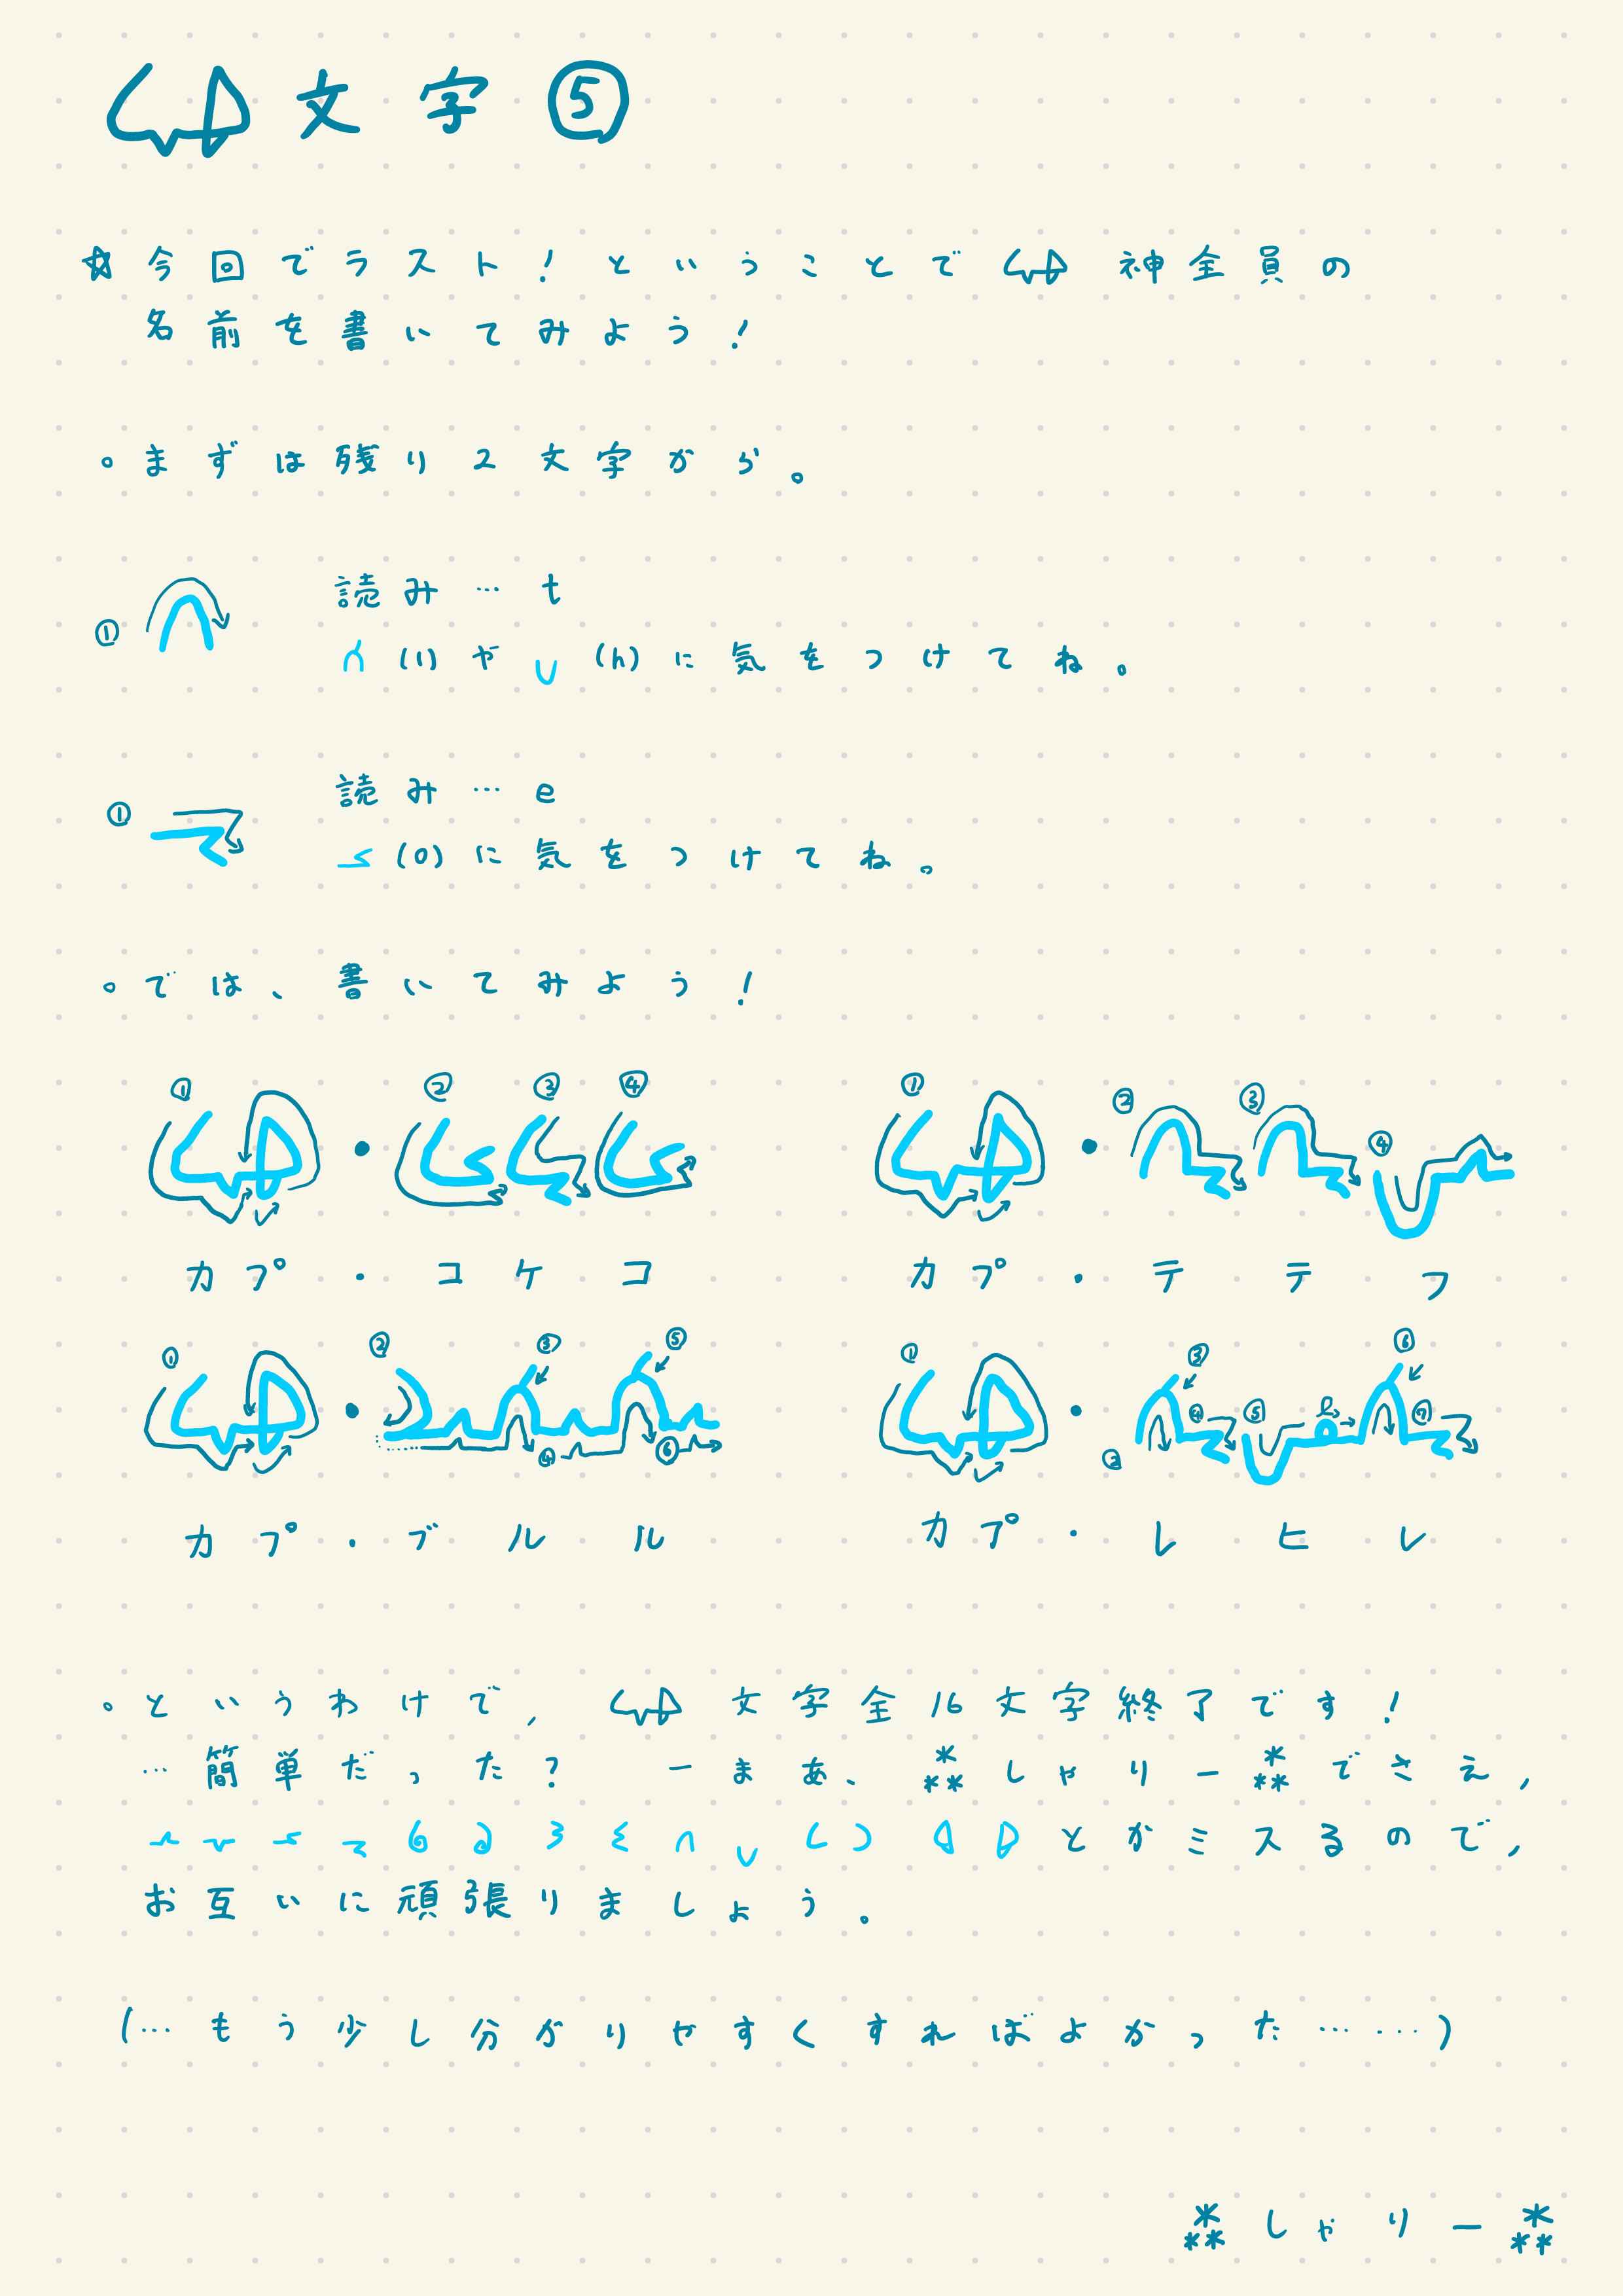 文字⑤
☆今回でラスト!ということで 神全員の
名前を書いてみよう!
。まずは残り2文字から。
① 読み…t
(l)や (h)に気をつけてね。
① 読み…e
(o)に気をつけてね。
。では、書いてみよう!
① ② ③ ④
カプ・コケコ
① ② ③ ④
カプ・テテフ
① ② ③ ④ ⑤ ⑥
カプ・ブルル
① ② ③ ④ ⑤ ⑥ ⑦
カプ・レヒレ
。というわけで, 文字全16文字終了です!
…簡単だった? ーまあ、⁂しゃりー⁂でさえ,
とかミスるので,
お互いに頑張りましょう。
(…もう少し分かりやすくすればよかった……)
⁂しゃりー⁂